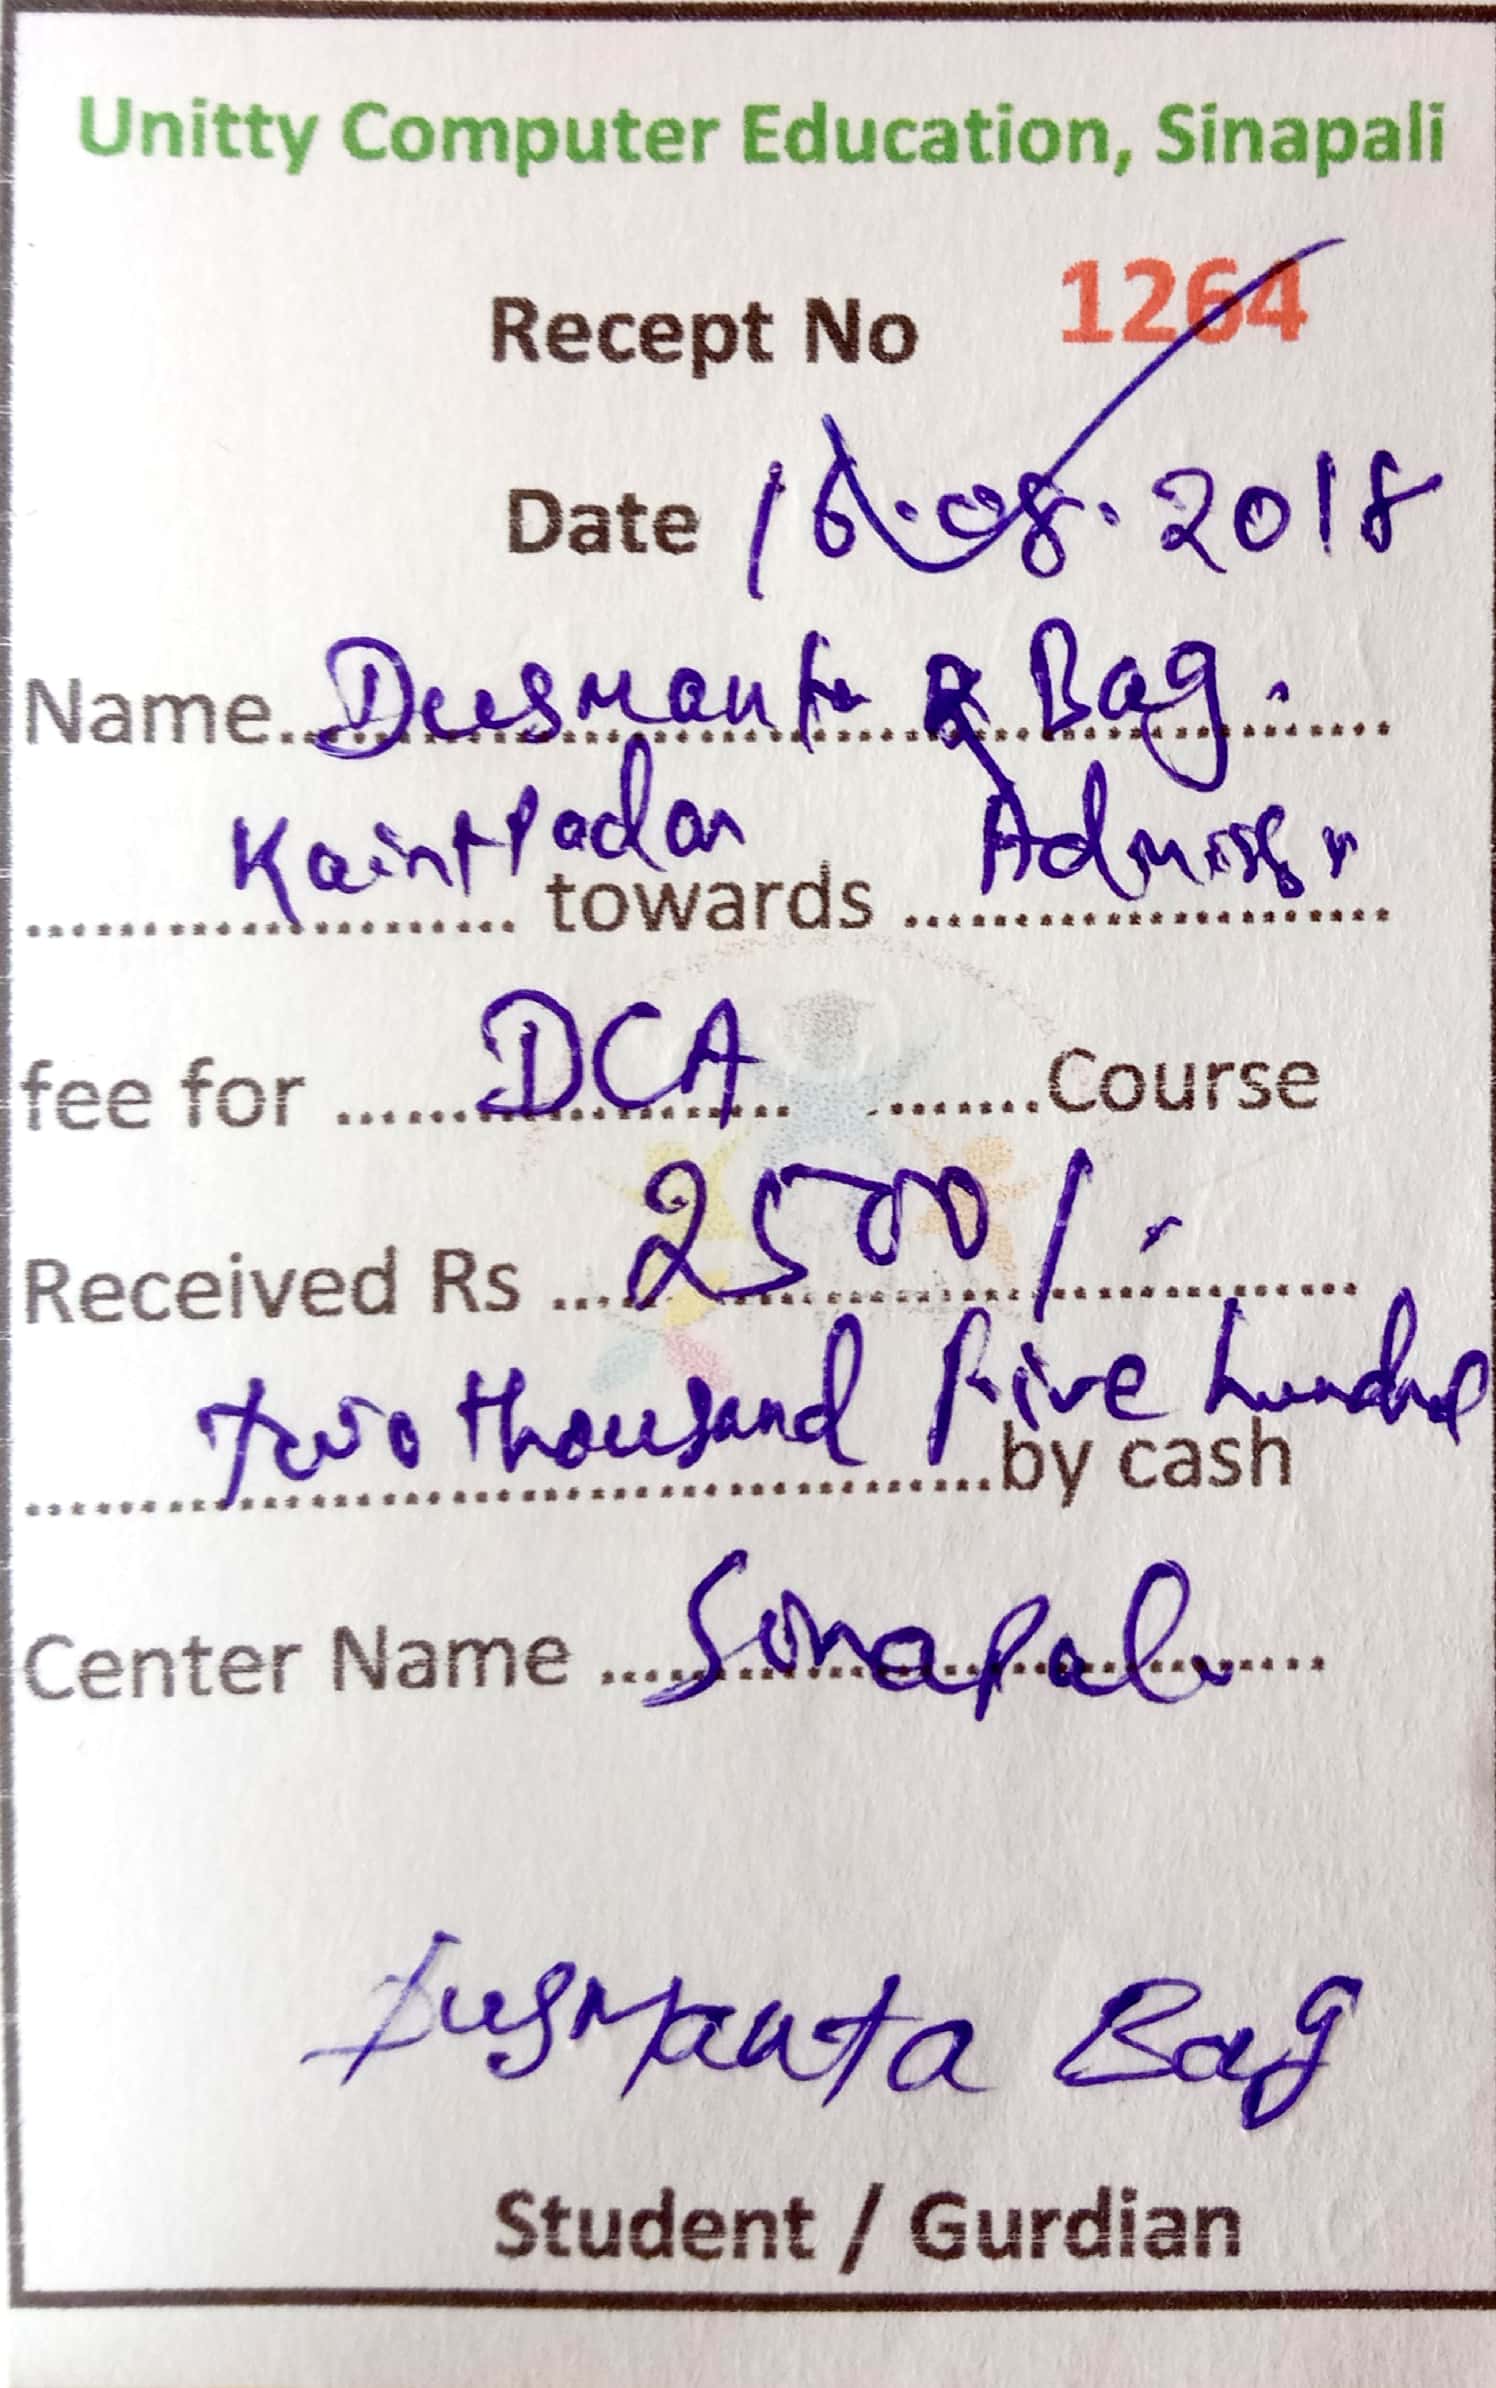 Unitty Computer Education, Sinapali
Recept No 1264
Date 16.08.2018
Name Dusmanta Bag.
Kaintpadar towards Admissn
fee for DCA Course
Received Rs 2500/-
two thousand five hundred by cash
Center Name Sinapali
Dusmanta Bag
Student / Gurdian